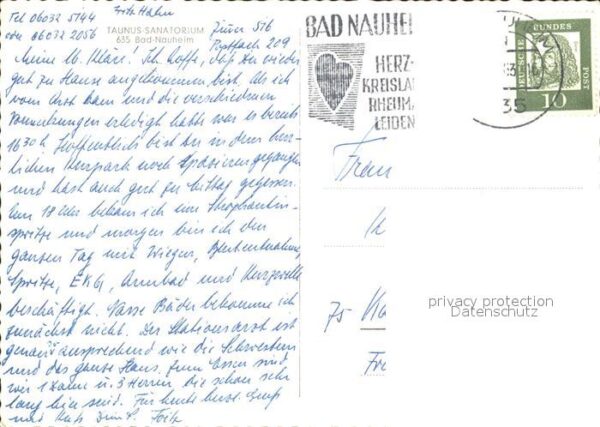 Tel 06032 5144 Fritz Hahn
von 06032 2056
TAUNUS-SANATORIUM
635 Bad-Nauheim
Zimm 516
Postfach 209
Meine lb. Kläre! Ich hoffe, daß Du wieder
gut zu Hause angekommen bist. Als ich
vom Arzt kam und die verschiedenen
erledigt hatte war es bereits
1630 h. Hoffentlich bist du in dem herr-
lichen Kurpark noch spazieren gegangen
und hast auch gut zu Mittag gegessen.
Um 18 Uhr bekam ich eine Strophantin-
spritze und morgen bin ich den
ganzen Tag mit Wiegen, Blutentnahme,
Spritze, EKG, Armbad und Kurzwelle
beschäftigt. Nasse Bäder bekomme ich
zunächst nicht. Der Stationsarzt ist
genauso ansprechend wie die Schwestern
und das ganze Haus. Zum Essen sind
wir 1 Dame u. 3 Herren die schon sehr
lang hier sind. Für heute herzl. Gruß
und Kuß Dein Fritz
BAD NAUHEI
HERZ-
KREISLA
RHEUM
LEIDEN
BUNDES
POST
10
Frau
75 Ka
Fr
privacy protection
Datenschutz